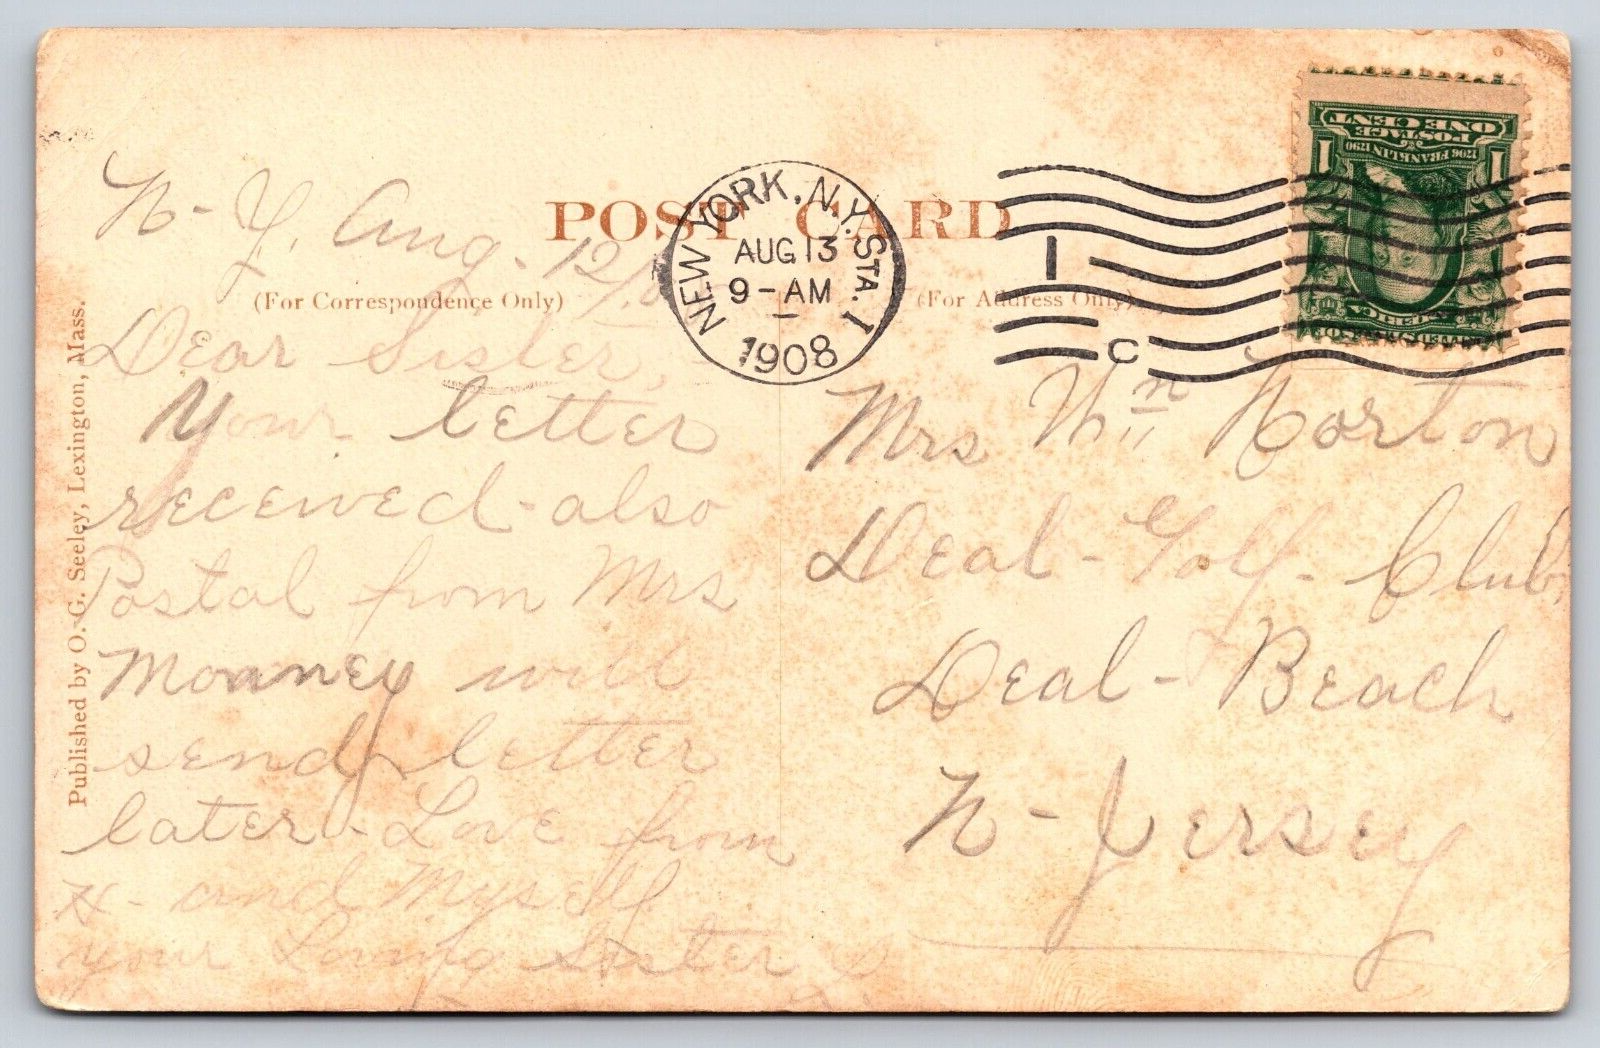 POST CARD
(For Correspondence Only)
(For Address Only)
NEW YORK, N.Y. STA. I
AUG 13
9-AM
1908
I
C
1 1
ONE CENT
POSTAGE
1706 FRANKLIN 1790
Published by O. G. Seeley, Lexington, Mass.
N-Y, Aug. 12/
Dear Sister,
Your letter
received-also
Postal from Mrs
Monney will
send letter
later-Love from
H- and Myself
your Loving Sister
Mrs Wm Norton
Deal-Golf-Club,
Deal-Beach
N-Jersey